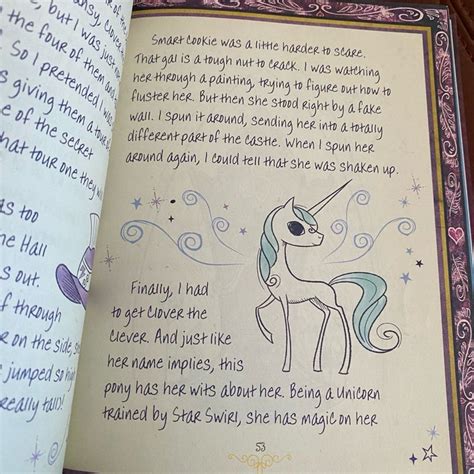 , but I was just
the four of them and
. So I pretended I was
s giving them a tour
e of the secret
hat tour one they
as too
he Hall
s out.
f through
r on the side, s
jumped so hi
really tall!
Smart Cookie was a little harder to scare.
That gal is a tough nut to crack. I was watching
her through a painting, trying to figure out how to
fluster her. But then she stood right by a fake
wall. I spun it around, sending her into a totally
different part of the castle. When I spun her
around again, I could tell that she was shaken up.
Finally, I had
to get Clover the
Clever. And just like
her name implies, this
pony has her wits about her. Being a Unicorn
trained by Star Swirl, she has magic on her
53